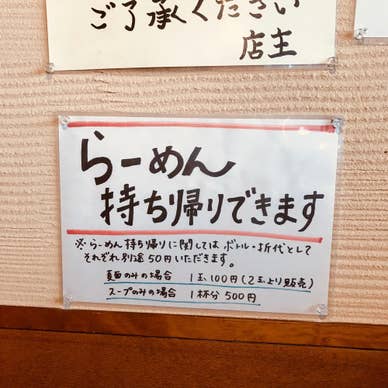 ご了承ください
店主
らーめん
持ち帰りできます
※らーめん持ち帰りに関しては ボトル・折代として
それぞれ別途50円いただきます。
真面のみの場合 1玉100円(2玉より販売)
スープのみの場合 1杯分 500円